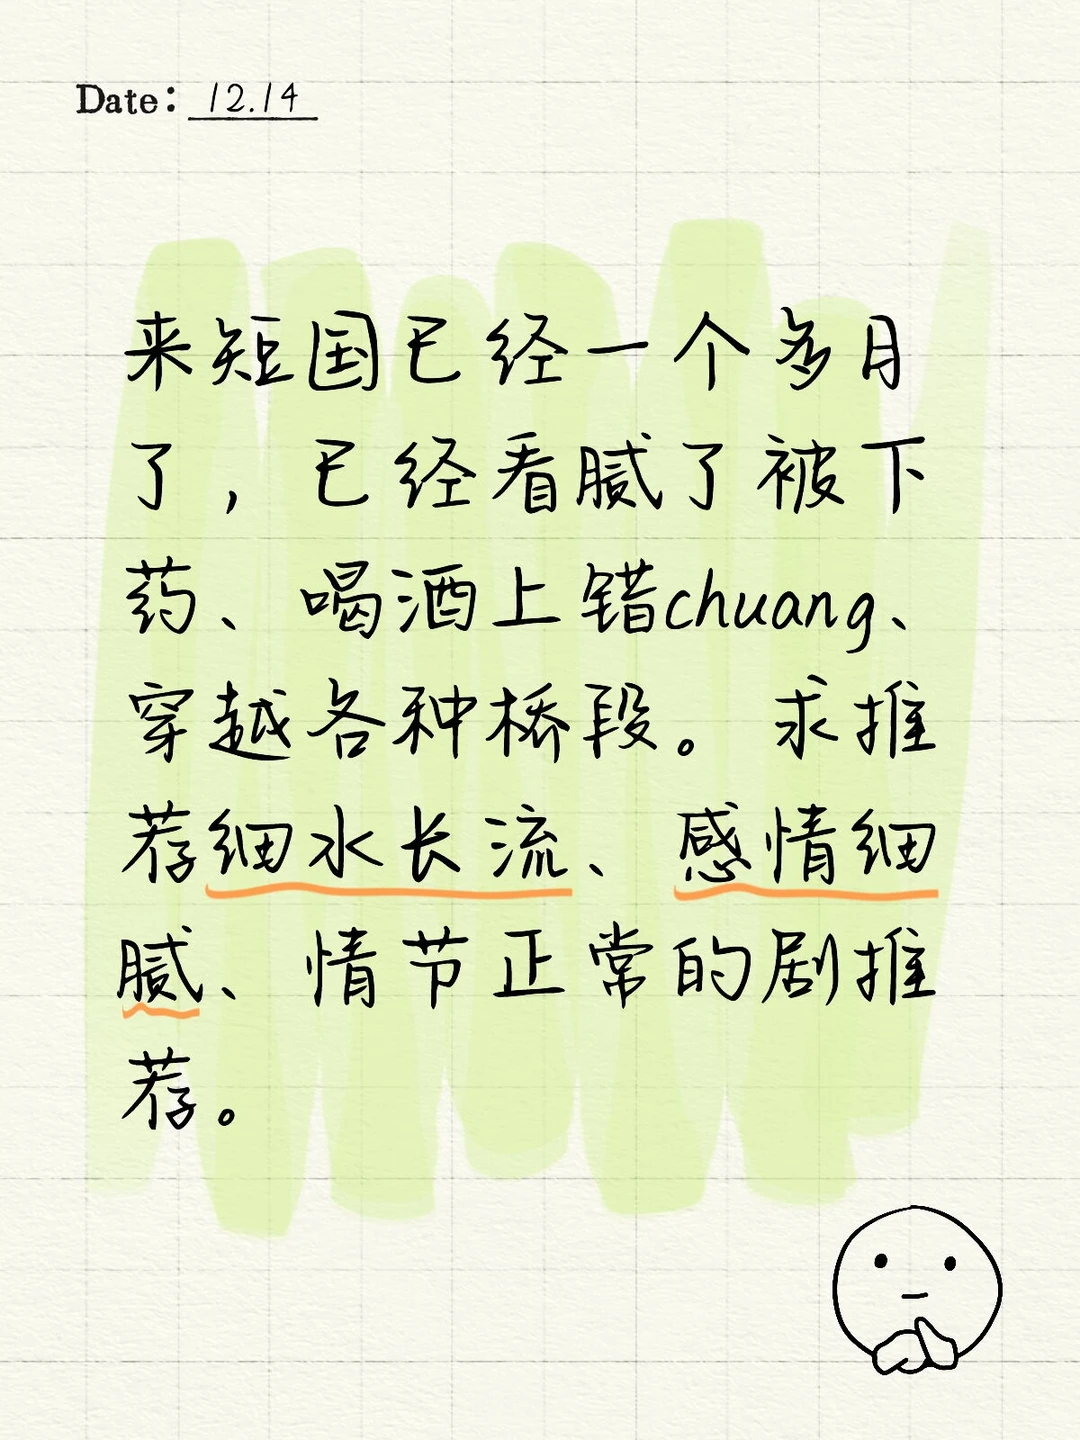 Date: 12.14
来短国已经一个多月
了，已经看腻了被下
药、喝酒上错chuang、
穿越各种桥段。求推
荐细水长流、感情细
腻、情节正常的剧推
荐。